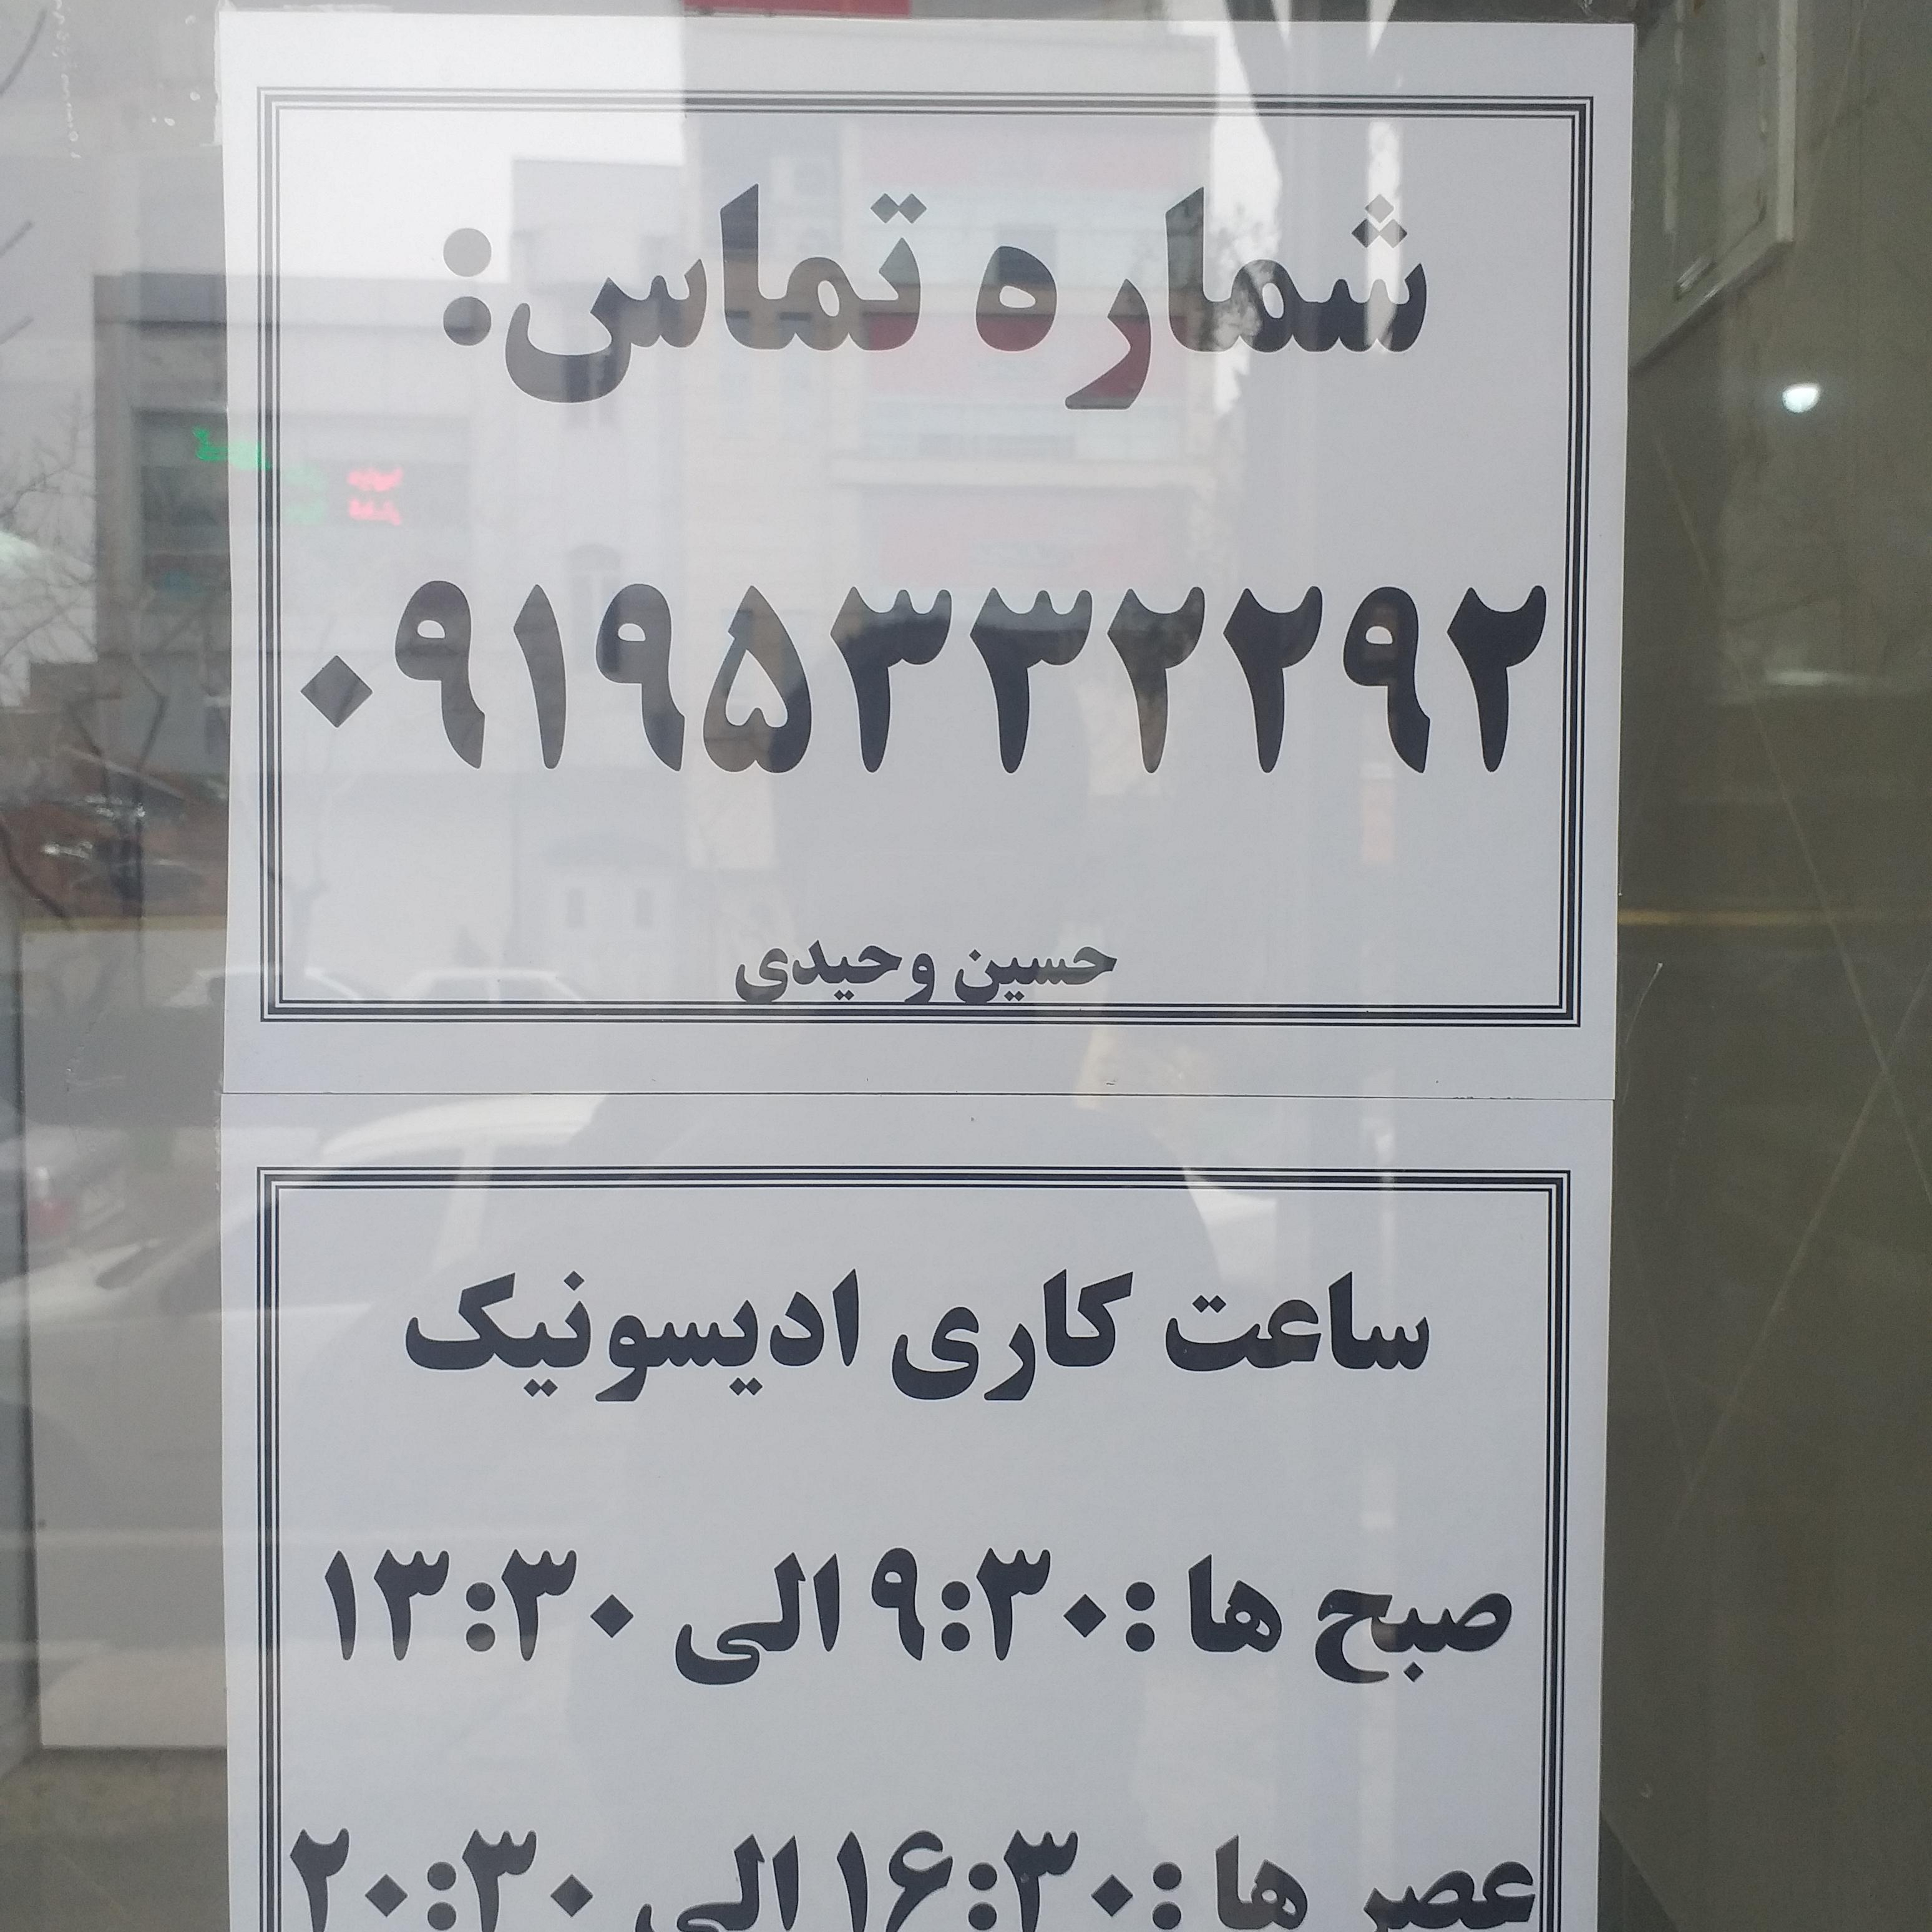 شماره تماس:
۰۹۱۹۵۳۳۲۲۹۲
حسین وحیدی
ساعت کاری ادیسونیک
صبح ها :۹:۳۰ الی ۱۳:۳۰
عصر ها :۱۶:۳۰ الی ۲۰:۳۰